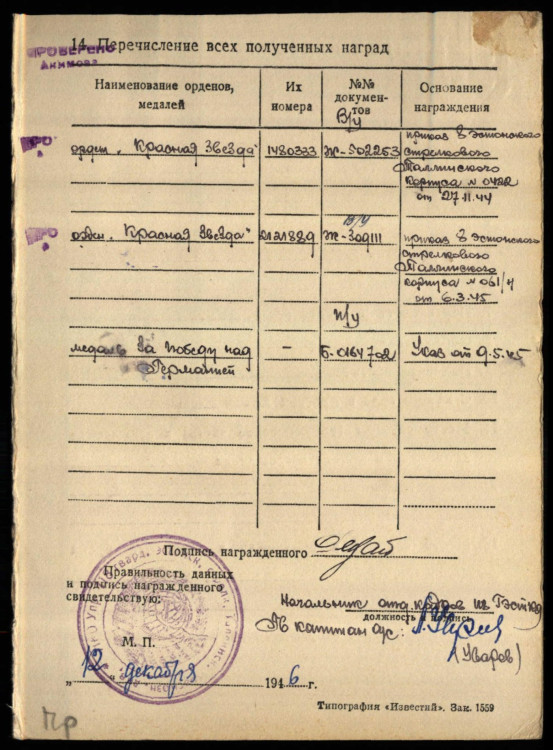 14. Перечисление всех полученных наград
ПРОВЕРЕНО
Акимова
Наименование орденов, медалей
Их номера
№№ документов
Основание награждения
В/у
орден "Красная Звезда" 1480333 Ж-502253 приказ 8 эстонского
стрелкового
Таллинского
корпуса № 0422
от 27.11.44
в/у
орден "Красная Звезда" Ж-309111 приказ 8 эстонского
стрелкового
Таллинского
корпуса № 061/н
от 6.3.45
п/у
медаль За победу над - Б-0164702 Указ от 9.5.45
Германией
Подпись награжденного
Правильность данных
и подпись награжденного
свидетельствую:
Начальник отд. кадров
должность и подпись
капитан а/с:
(Уваров)
М. П.
„12" декабря 1946 г.
Типография «Известий». Зак. 1559
пр